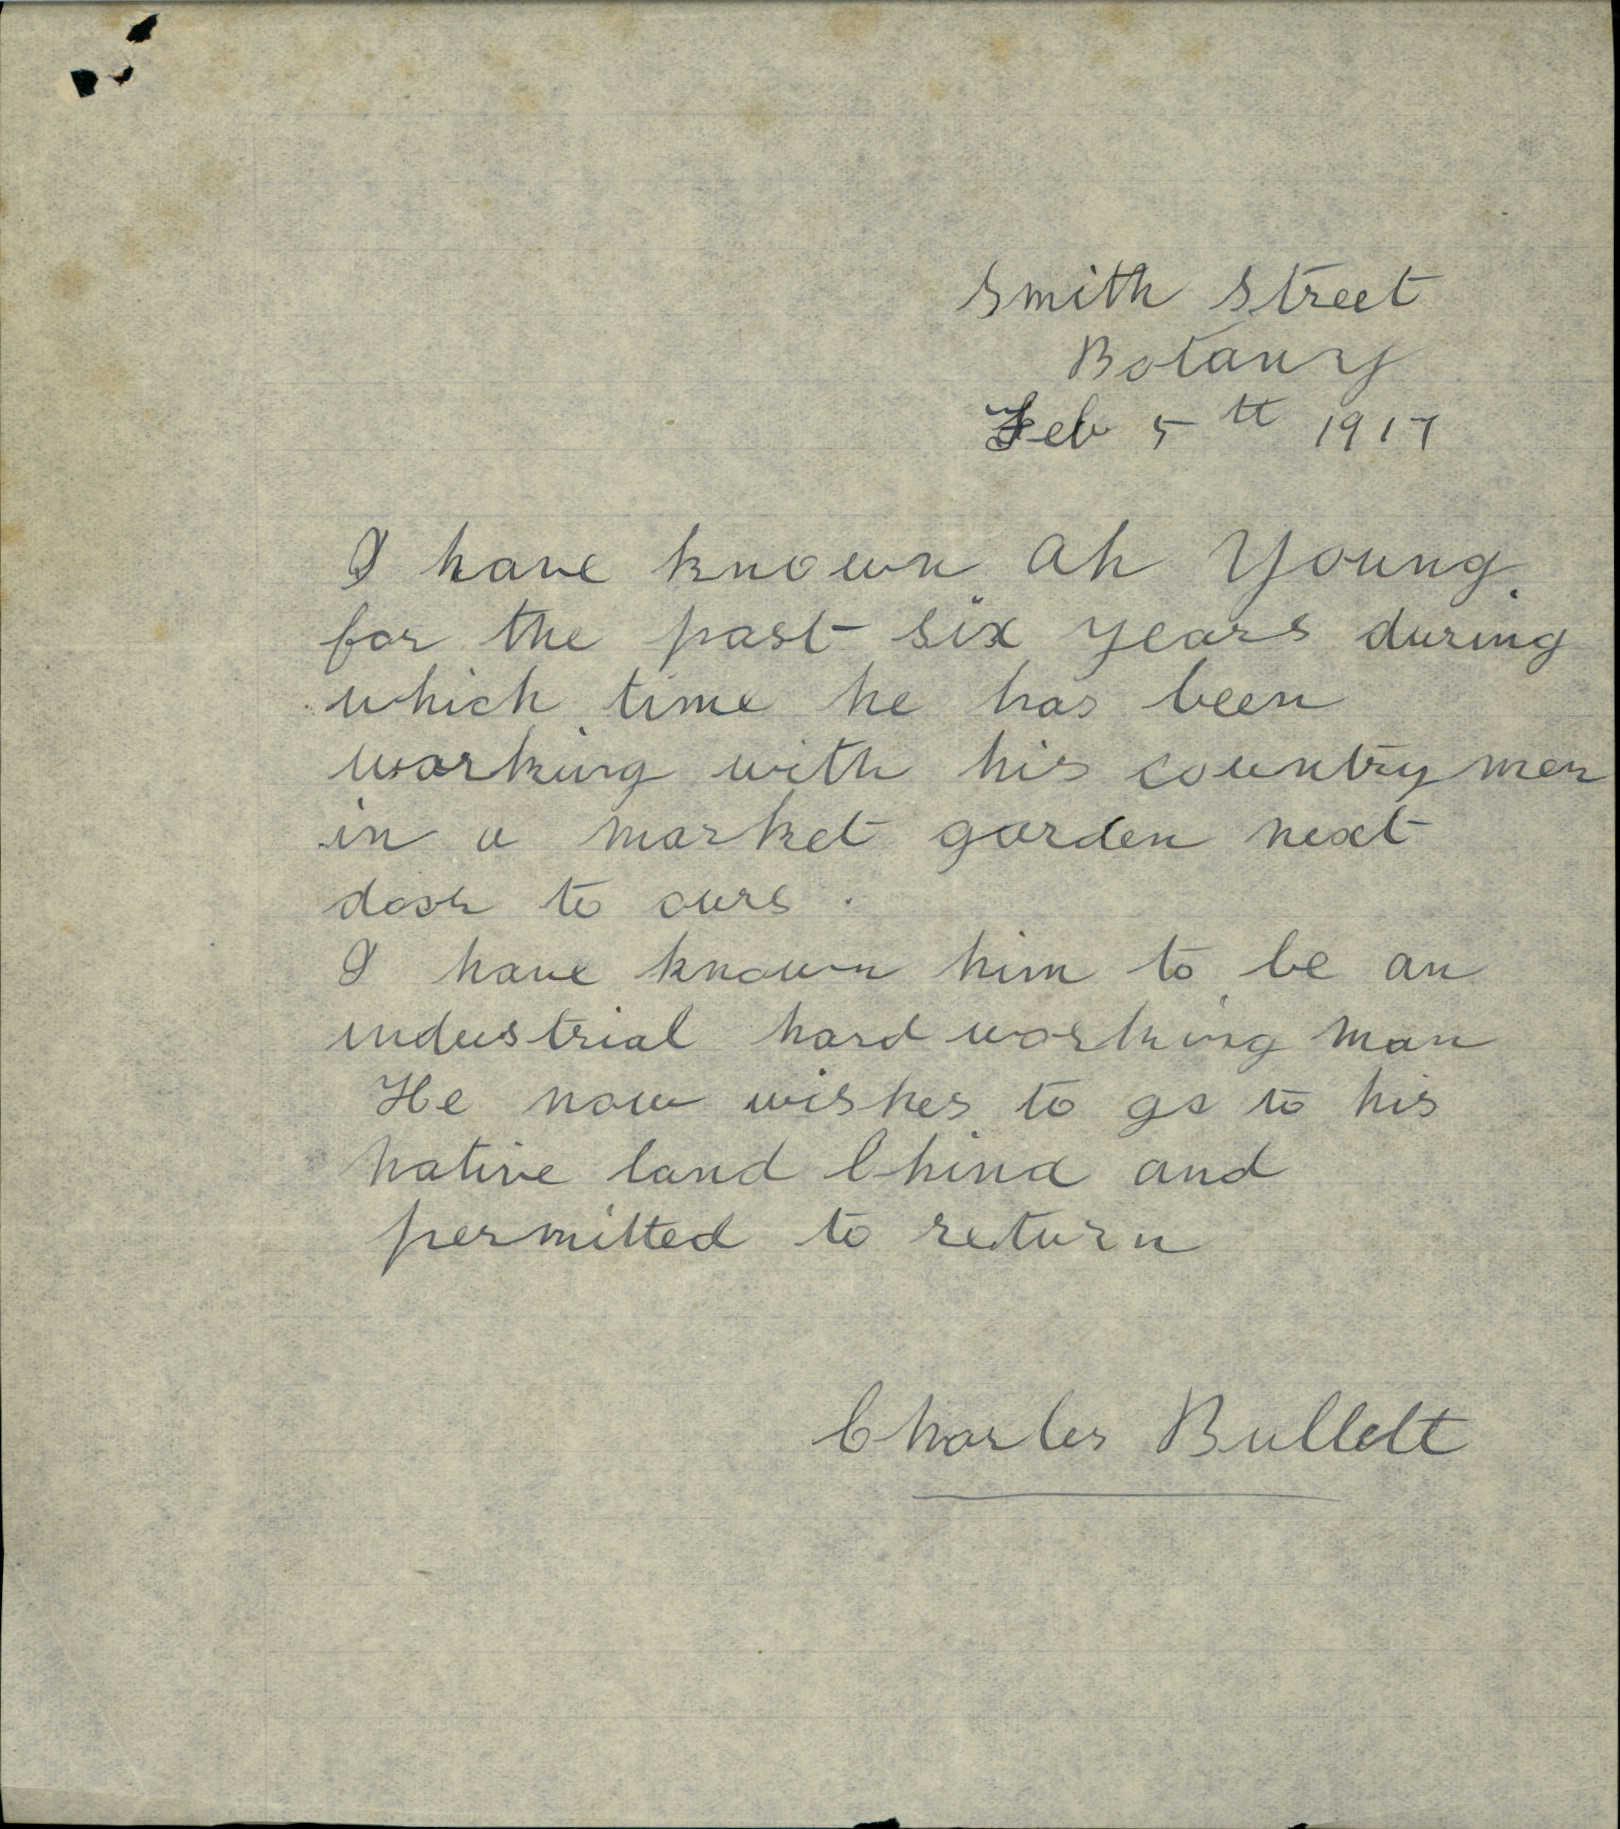 Smith Street
Botany
Feb 5th 1917
I have known Ah Young.
for the past six years during
which time he has been
working with his country men
in a market garden next
door to ours.
I have known him to be an
industrial hard working man
He now wishes to go to his
native land China and
permitted to return
Charles Bullett